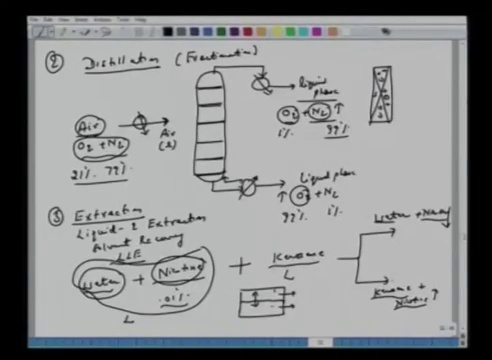 ② Distillation (Fractionation)
liquid phase
Air
O₂ + N₂
21% 79%
Air (l)
O₂ + N₂ ↑
1% 99%
liquid phase
↑ O₂ + N₂
99% 1%
③ Extraction
Liquid-L Extraction
Solvent Recovery
LLE
Water + Nicotine + Kerosene
.01% L
L
Water +
Kerosene +
Nicotine ↑